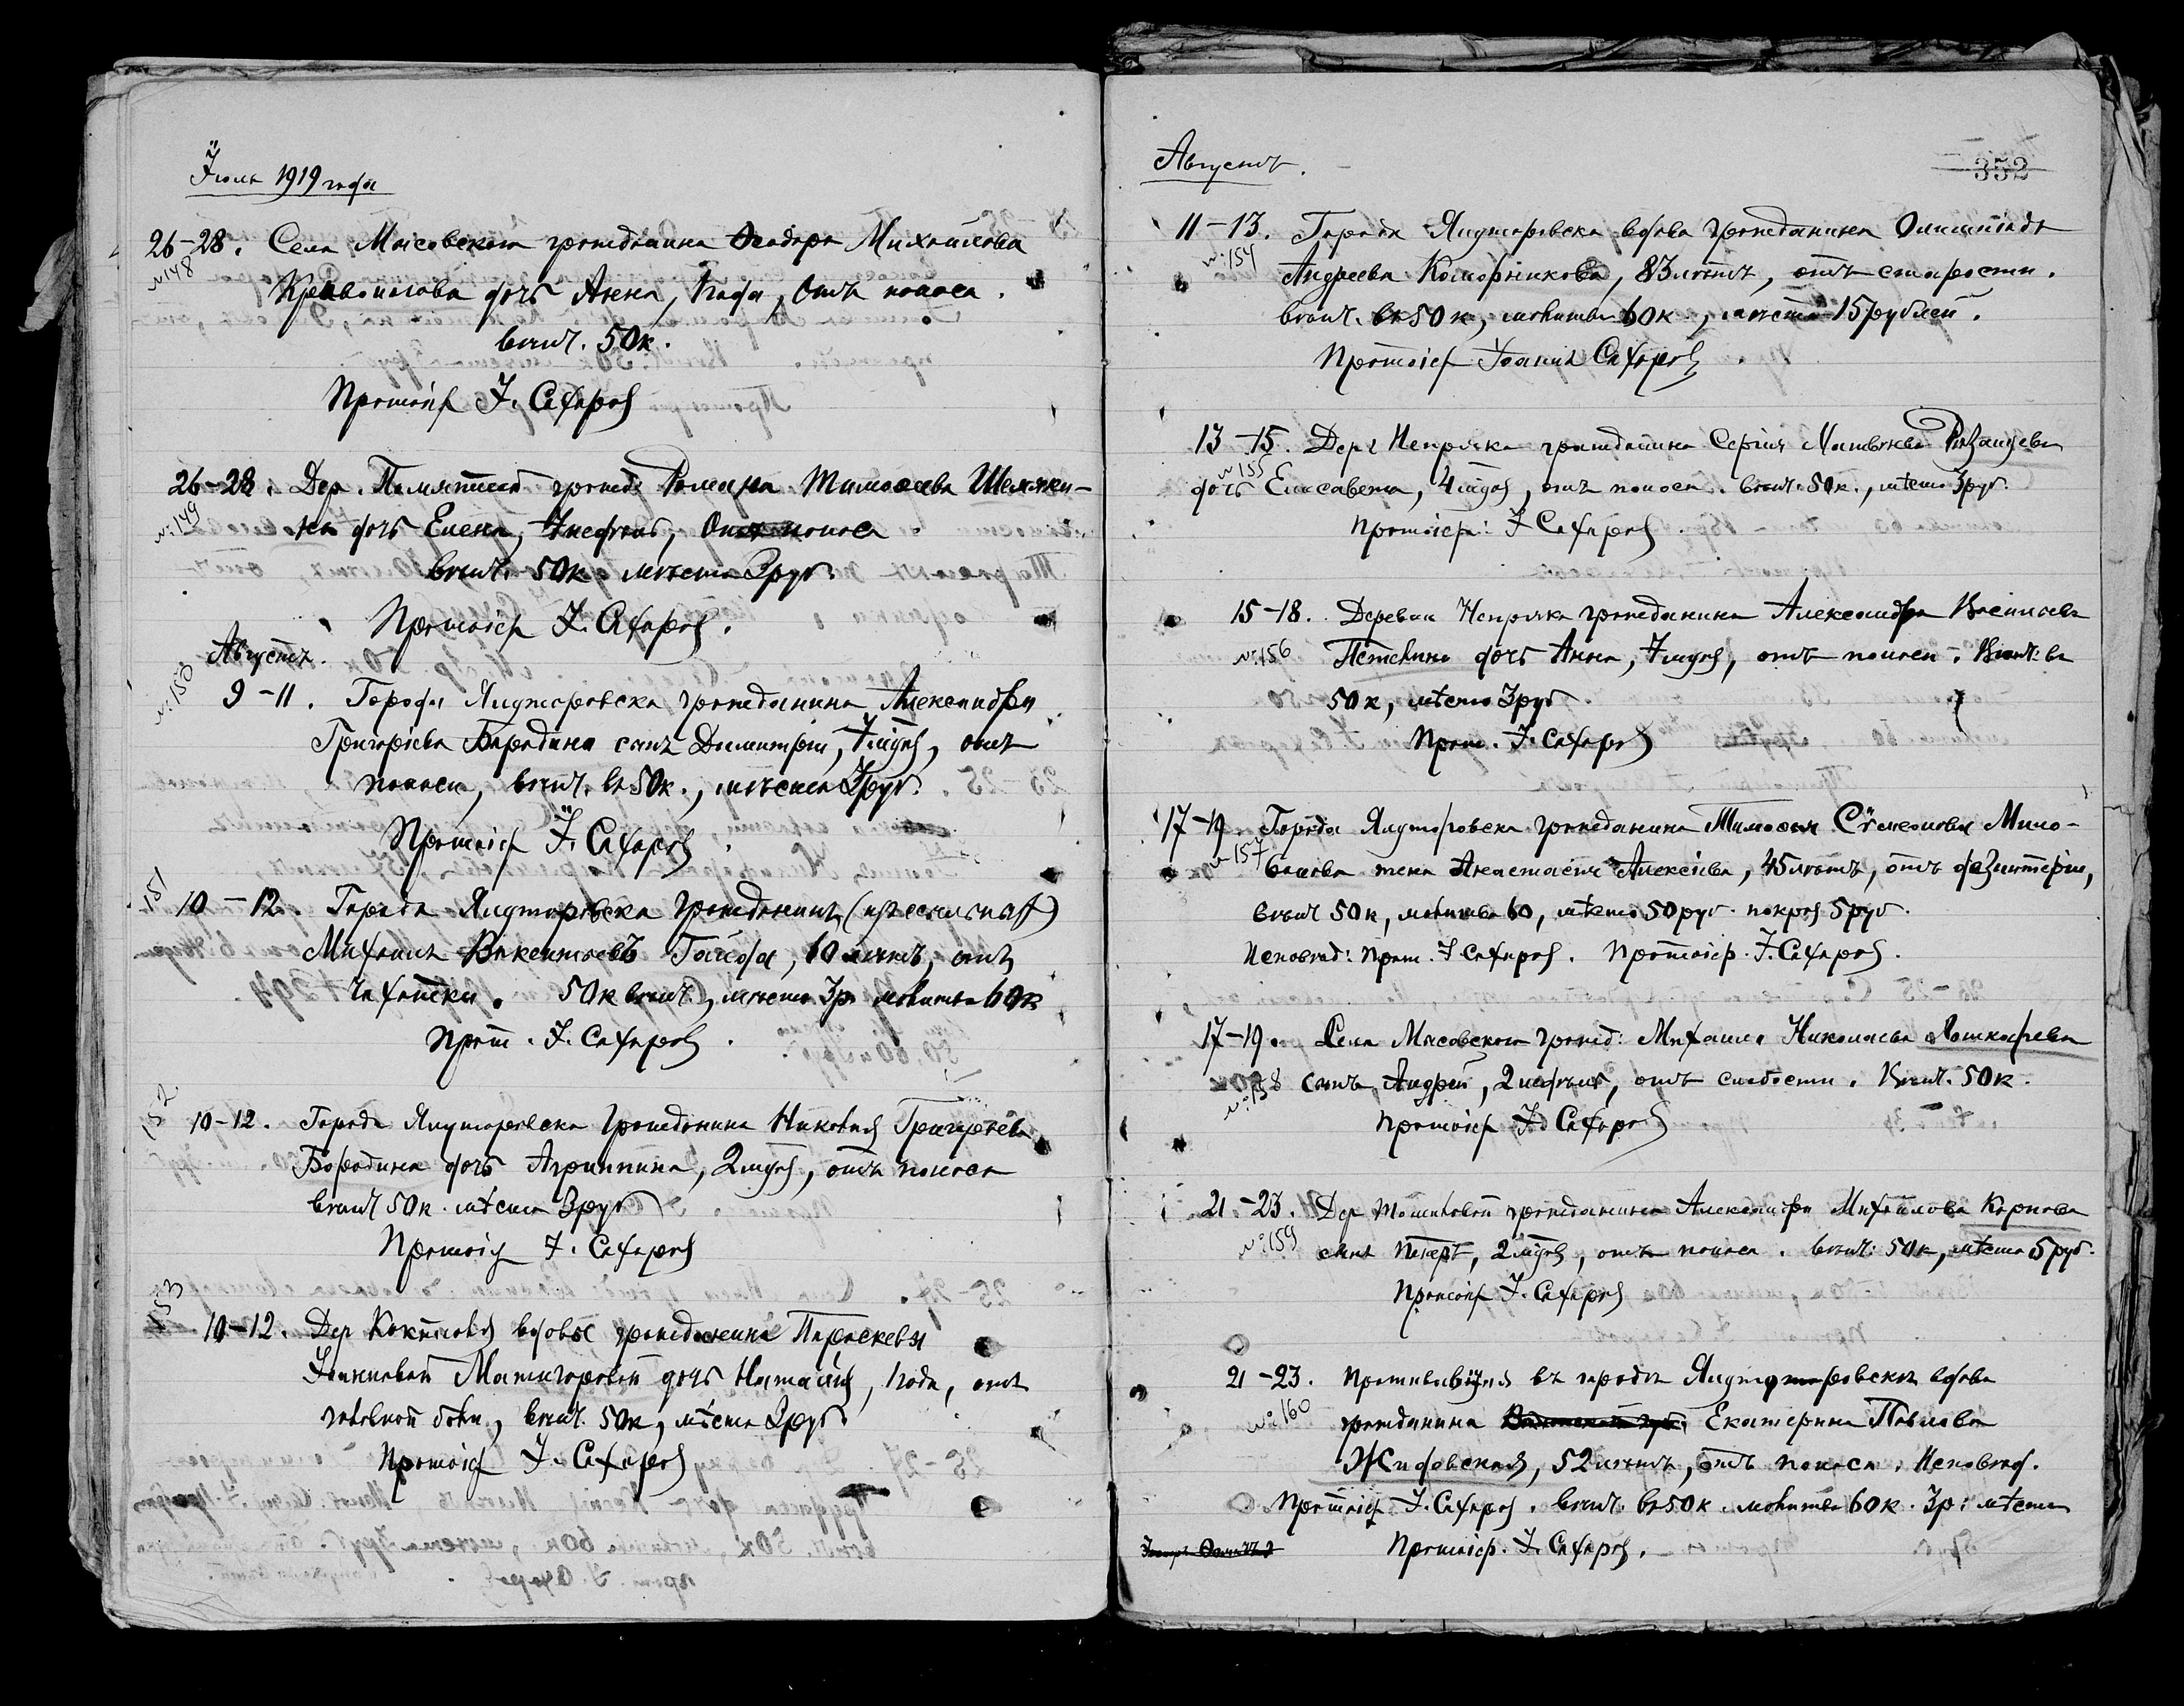 Іюль 1919 года
26-28. Села Мысовского гражданина Ѳеодора Михаилова
№ 148
Кривоногова дочь Анна, 1 года, отъ поноса.
вѣнч. 50 к.
Протоіер І. Сахаров
26-28. Дер. Памятной гражд. Романа Тимоѳеева
№ 149
дочь Елена, 7 недѣль, отъ поноса
вѣнч. 50 к мѣсто 3 руб.
Протоіер І. Сахаров.
Августъ.
№ 150
9-11. Города Ялуторовска гражданина Александра
Григорьева Бородина сынъ Димитрій, 7 мѣс, отъ
поноса, вѣнч. въ 50 к., мѣсто 3 руб.
Протоіер І. Сахаров
151
10-12. Города Ялуторовска гражданинъ (из ссыльных)
Михаилъ Викентьевъ, 60 лѣтъ, отъ
чахотки. 50 к вѣнч., мѣсто 3 р. молитва 60 к
Прот. І. Сахаров.
152
10-12. Города Ялуторовска гражданина Николая Григорьева
Бородина дочь Агриппина, 2 мѣс, отъ поноса
вѣнч 50 к. мѣсто 3 руб
Протоіер І. Сахаров
153
10-12. Дер вдовы гражданина Параскевы
Матигоровой дочь Наталія, 1 года, отъ
головной боли, вѣнч. 50 к, мѣсто 3 руб.
Протоіер І. Сахаров
Августъ.
352
11-13. Города Ялуторовска вдова гражданина Олимпіада
№ 154
Андреева Коморникова, 83 лѣтъ, отъ старости.
вѣнч. въ 50 к, молитва 60 к, мѣсто 15 рублей.
Протоіер Іоаннъ Сахаров
13-15. Дер. Непряка гражданина Сергія Матвѣева Рязанцева
№ 155
дочь Елисавета, 4 мѣс, отъ поноса. вѣнч. 50 к., мѣсто 3 руб.
Протоіер: І Сахаров.
15-18. Деревни Непряка гражданина Александра Васильева
№ 156
дочь Анна, 7 мѣс, отъ поноса. Вѣнч. въ
50 к, мѣсто 3 руб
Прот. І. Сахаров
17-19. Города Ялуторовска гражданина Тимоѳея Сѵмеонова Мило-
№ 157
ванова жена Анастасія Алексіева, 45 лѣтъ, отъ дизентеріи,
вѣнч 50 к, молитва 60, мѣсто 50 руб. покров 5 руб.
Исповѣд: Прот. І Сахаров. Протоіер. І. Сахаров.
17-19. Села Мысовского гражд: Михаила Николаева Лошкарева
№ 158
сынъ Андрей, 2 недѣль, отъ слабости. Вѣнч. 50 к.
Протоіер І. Сахаров
21-23. Дер гражданина Александра Михаилова Карпова
№ 159
сынъ Петръ, 2 мѣс, отъ поноса. вѣнч: 50 к, мѣсто 5 руб.
Протоіер І. Сахаров
21-23. Проживавшая въ городѣ Ялуторовскѣ вдова
№ 160
гражданина Екатерина Павлова
Жидовская, 52 лѣтъ, отъ поноса. Исповѣд.
Протоіер І. Сахаров. вѣнч. въ 50 к. молитва 60 к. 3 р: мѣсто
Протоіер. І. Сахаров.